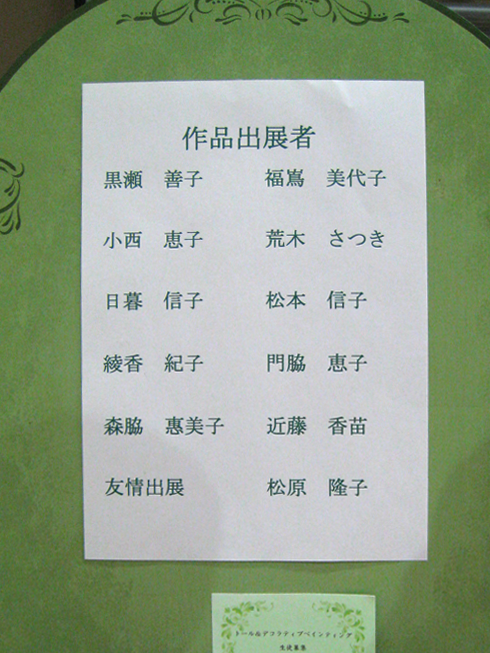 作品出展者
黒瀬　善子　福嶌　美代子
小西　恵子　荒木　さつき
日暮　信子　松本　信子
綾香　紀子　門脇　恵子
森脇　惠美子　近藤　香苗
友情出展　松原　隆子
トール&デコラティブペインティング
生徒募集